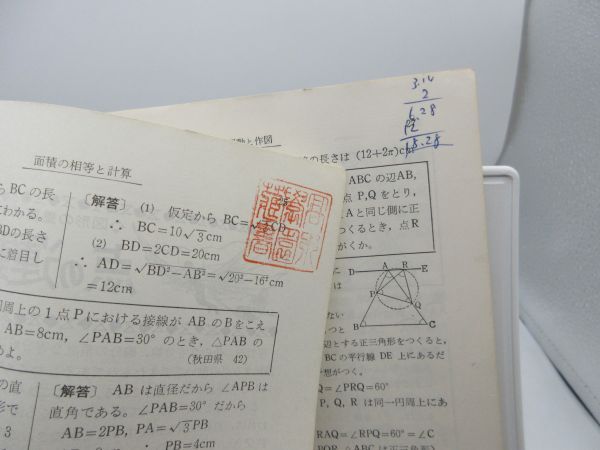 面積の相等と計算
BCの長
わかる。
BDの長さ
に着目し
〔解答〕 (1) 仮定から BC=√3CD
∴ BC=10√3cm
(2) BD=2CD=20cm
∴ AD=√BD²−AB²=√20²−16²cm
=12cm
周上の1点Pにおける接線が ABのBをこえ
AB=8cm, ∠PAB=30° のとき, △PAB の
めよ。
(秋田県 42)
の直
形で
3
〔解答〕 AB は直径だから ∠APBは
直角である。∠PAB=30° だから
AB=2PB, PA=√3PB
∴ PB=4cm
と作図
3.14
2
6.28
12
18.28
の長さは (12+2π)cm
ABC の辺AB,
点 P,Q をとり,
Aと同じ側に正
つくるとき, 点 R
がくか。
D
A
R
E
P
Q
B
C
に
は
ない
つと
辺とする正三角形をつくると,
BCの平行線 DE 上にあるだ
想がつく。
Q=∠PRQ=60°
P, Q, R は同一円周上にあ
RAQ=∠RPQ=60°=∠C